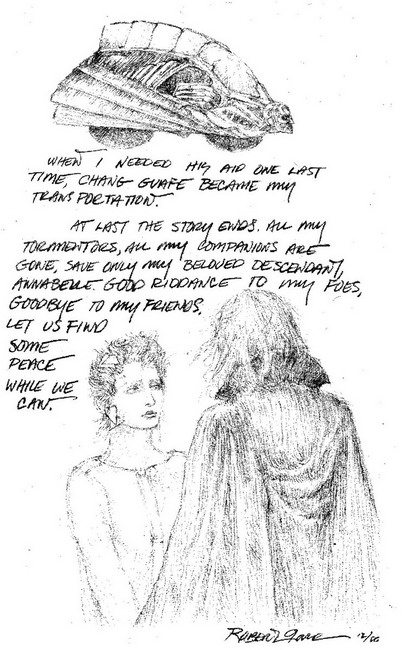 WHEN I NEEDED HIS AID ONE LAST
TIME, CHANG GUAFE BECAME MY
TRANSPORTATION.
AT LAST THE STORY ENDS. ALL MY
TORMENTORS, ALL MY COMPANIONS ARE
GONE, SAVE ONLY MY BELOVED DESCENDANT,
ANNABELLE. GOOD RIDDANCE TO MY FOES,
GOODBYE TO MY FRIENDS.
LET US FIND
SOME
PEACE
WHILE WE
CAN.